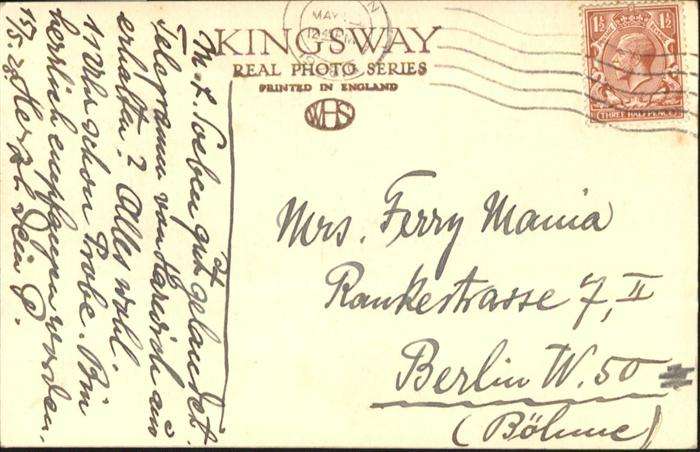 KINGSWAY
REAL PHOTO SERIES
PRINTED IN ENGLAND
WHS
MAY
1½ 1½
THREE HALFPENCE
M. L. Soeben gut gelandet.
Telegramm von Harwich aus
erhalten? Alles wohl.
11 Uhr schon Probe. Bin
herrlich empfangen worden.
Herzl. Dein P.
15/5.
Mrs. Ferry Mania
Rankestrasse 7, II
Berlin W. 50
(Böhme)